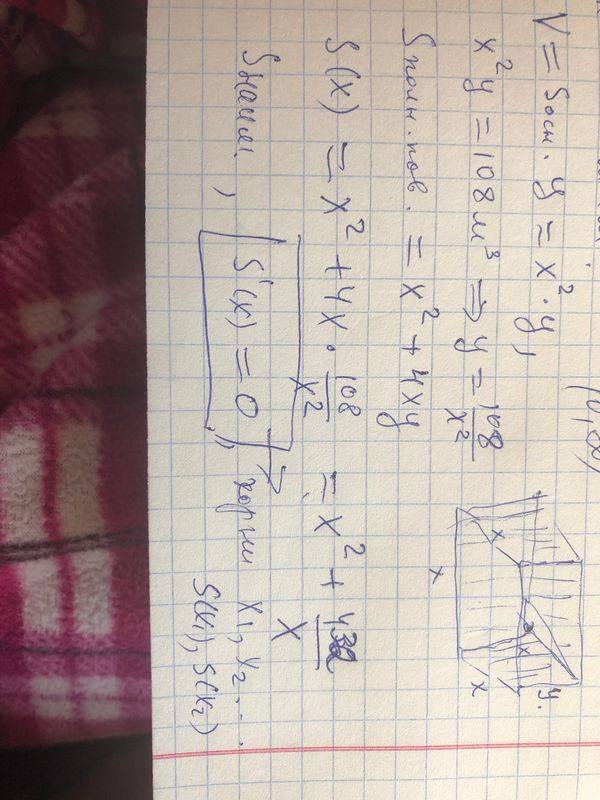 (0; ∞)
V = Sосн. y = x² · y,
x²y = 108 м³ ⇒ y = 108/x²
Sполн. пов. = x² + 4xy
S(x) = x² + 4x · 108/x² = x² + 432/x
Sнаим., S'(x) = 0, корни x₁, x₂ ...
S(x₁), S(x₂)
x
x
x
x
y.